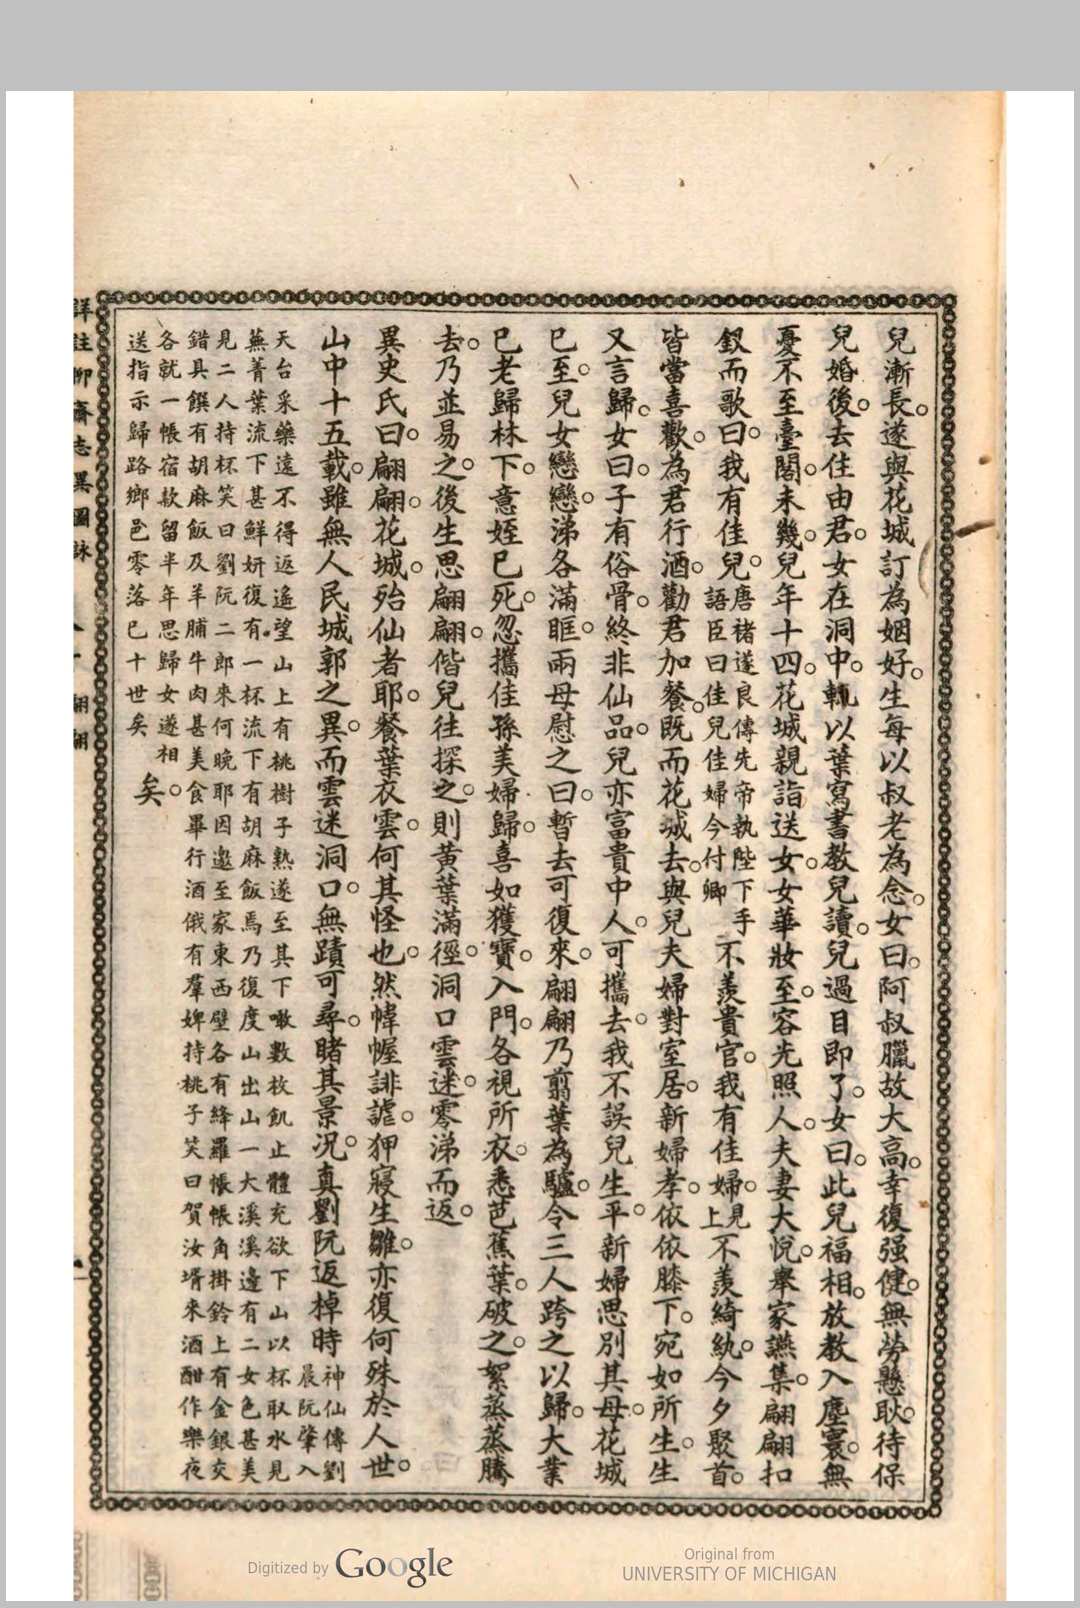 兒漸長。遂與花城訂為姻好。生每以叔老為念。女曰。阿叔臘故大高。幸復强健。無勞懸耿。待保
兒婚後。去住由君。女在洞中。輒以葉寫書教兒讀。兒過目即了。女曰。此兒福相。放教入塵寰。無
憂不至臺閣。未幾。兒年十四。花城親詣送女。女華妝至。容光照人。夫妻大悅。舉家讌集。翩翩扣
釵而歌曰。我有佳兒。唐褚遂良傳先帝執陛下手語臣曰佳兒佳婦今付卿不羨貴官。我有佳婦。見上不羨綺紈。今夕聚首。
皆當喜歡。為君行酒。勸君加餐。既而花城去。與兒夫婦對室居。新婦孝。依依膝下。宛如所生。生
又言歸。女曰。子有俗骨。終非仙品。兒亦富貴中人。可攜去。我不誤兒生平。新婦思別其母。花城
已至。兒女戀戀。涕各滿眶。兩母慰之曰。暫去可復來。翩翩乃翦葉為驢。令三人跨之以歸。大業
已老歸林下。意姪已死。忽攜佳孫美婦歸。喜如獲寶。入門。各視所衣。悉芭蕉葉。破之。絮蒸蒸騰
去。乃並易之。後生思翩翩。偕兒往探之。則黃葉滿徑。洞口雲迷。零涕而返。
異史氏曰。翩翩。花城。殆仙者耶。餐葉衣雲。何其怪也。然幃幄誹謔。狎寢生雛。亦復何殊於人世。
山中十五載。雖無人民城郭之異。而雲迷洞口。無蹟可尋。睹其景況。真劉阮返棹時神仙傳劉晨阮肇入
天台采藥遠不得返遙望山上有桃樹子熟遂至其下噉數枚飢止體充欲下山以杯取水見
蕪菁葉流下甚鮮妍復有一杯流下有胡麻飯焉乃復度山出山一大溪溪邊有二女色甚美
見二人持杯笑曰劉阮二郎來何晚耶因邀至家東西壁各有絳羅帳帳角掛鈴上有金銀交
錯具饌有胡麻飯及羊脯牛肉甚美食畢行酒俄有羣婢持桃子笑曰賀汝壻來酒酣作樂夜
各就一帳宿款留半年思歸女遂相
送指示歸路鄉邑零落已十世矣
矣。
詳註聊齋志異圖詠
翩翩
Digitized by Google
Original from
UNIVERSITY OF MICHIGAN